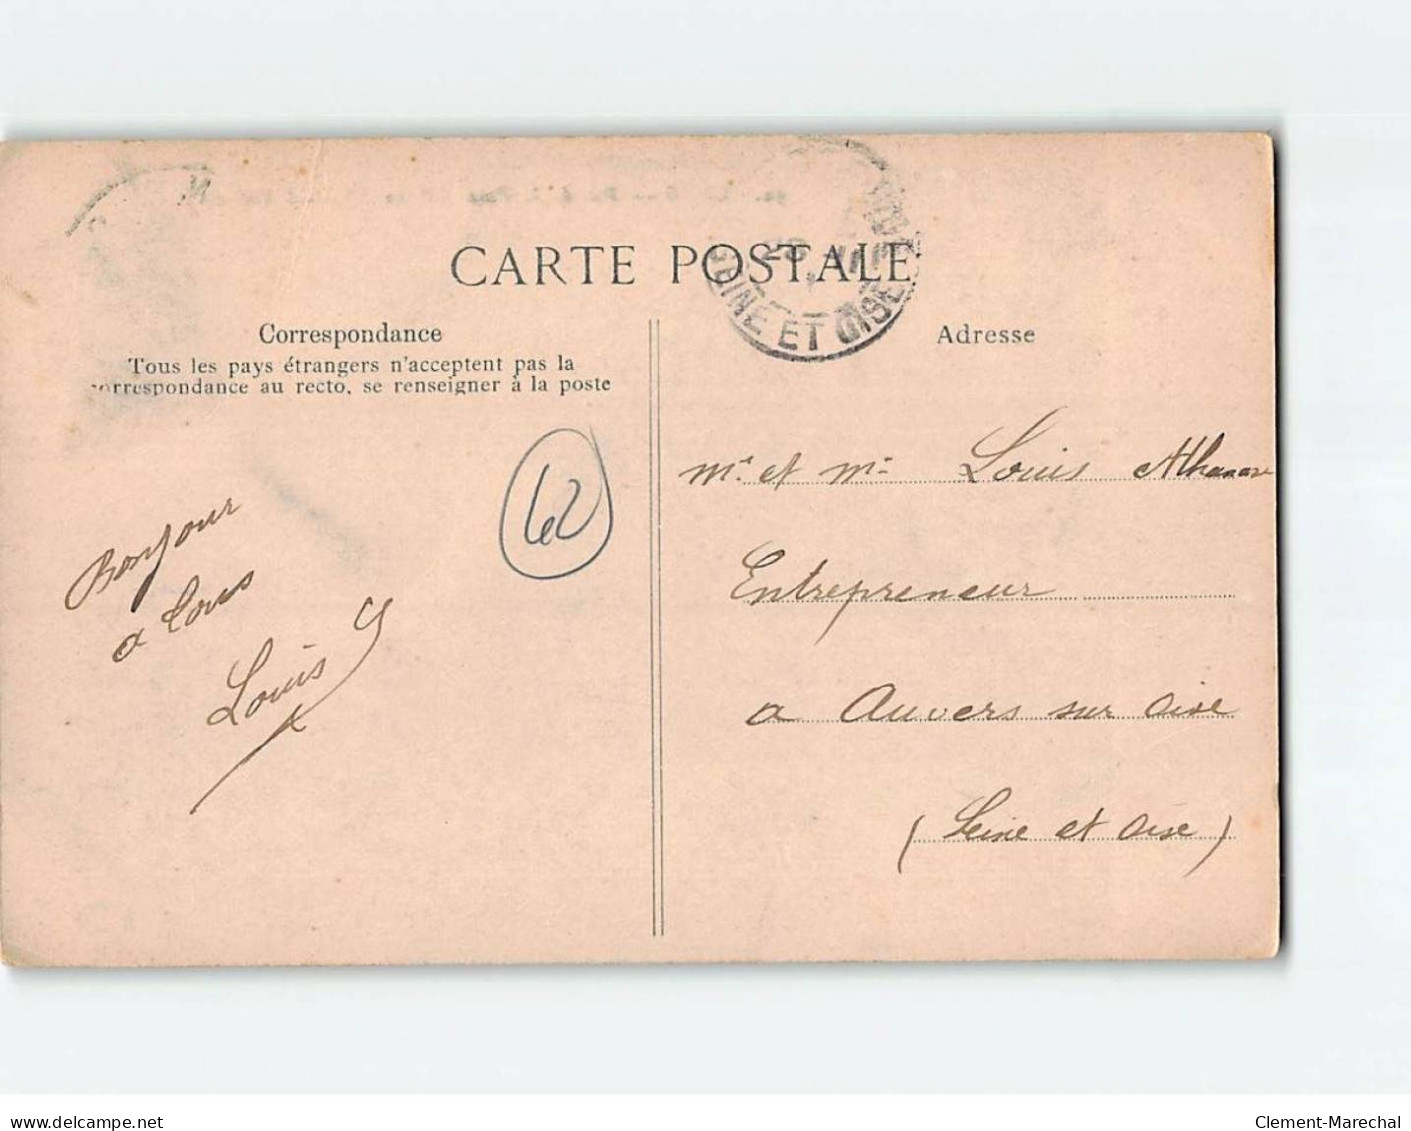 CARTE POSTALE
Correspondance
Tous les pays étrangers n'acceptent pas la
correspondance au recto, se renseigner à la poste
Adresse
SEINE ET OISE
62
Bonjour
a tous
Louis
Mr et Mme Louis Athanase
Entrepreneur
a Auvers sur Oise
(Seine et Oise)
www.delcampe.net
Clement-Marechal